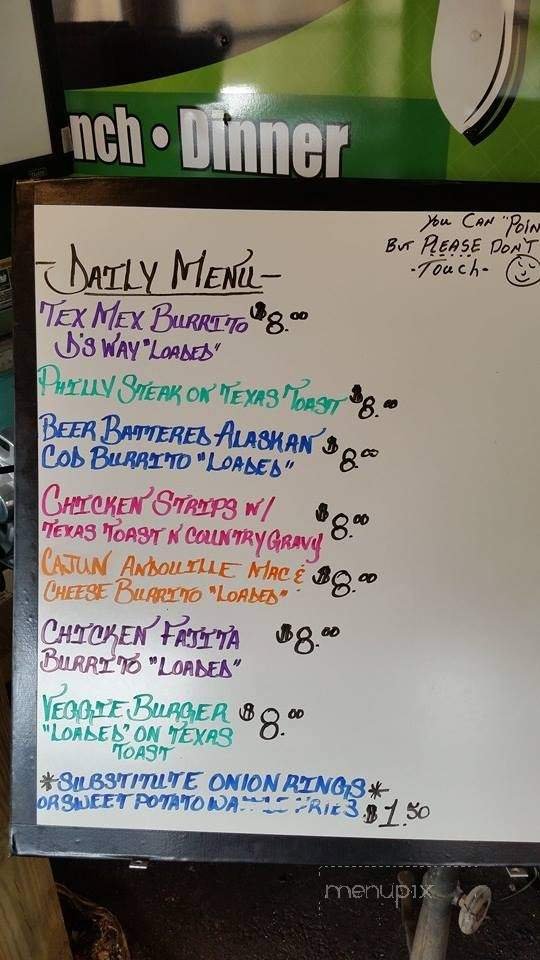 nch • Dinner
You Can "Poin
But Please Don't
-Touch-
-Daily Menu-
Tex Mex Burrito $8.00
D's Way "Loaded"
Philly Steak on Texas Toast $8.00
Beer Battered Alaskan
Cod Burrito "Loaded" $8.00
Chicken Strips w/
Texas Toast n Country Gravy $8.00
Cajun Andouille Mac &
Cheese Burrito "Loaded" $8.00
Chicken Fajita
Burrito "Loaded" $8.00
Veggie Burger $8.00
"Loaded" on Texas
Toast
*Substitute Onion Rings*
or Sweet Potato Waffle Fries $1.50
menupix